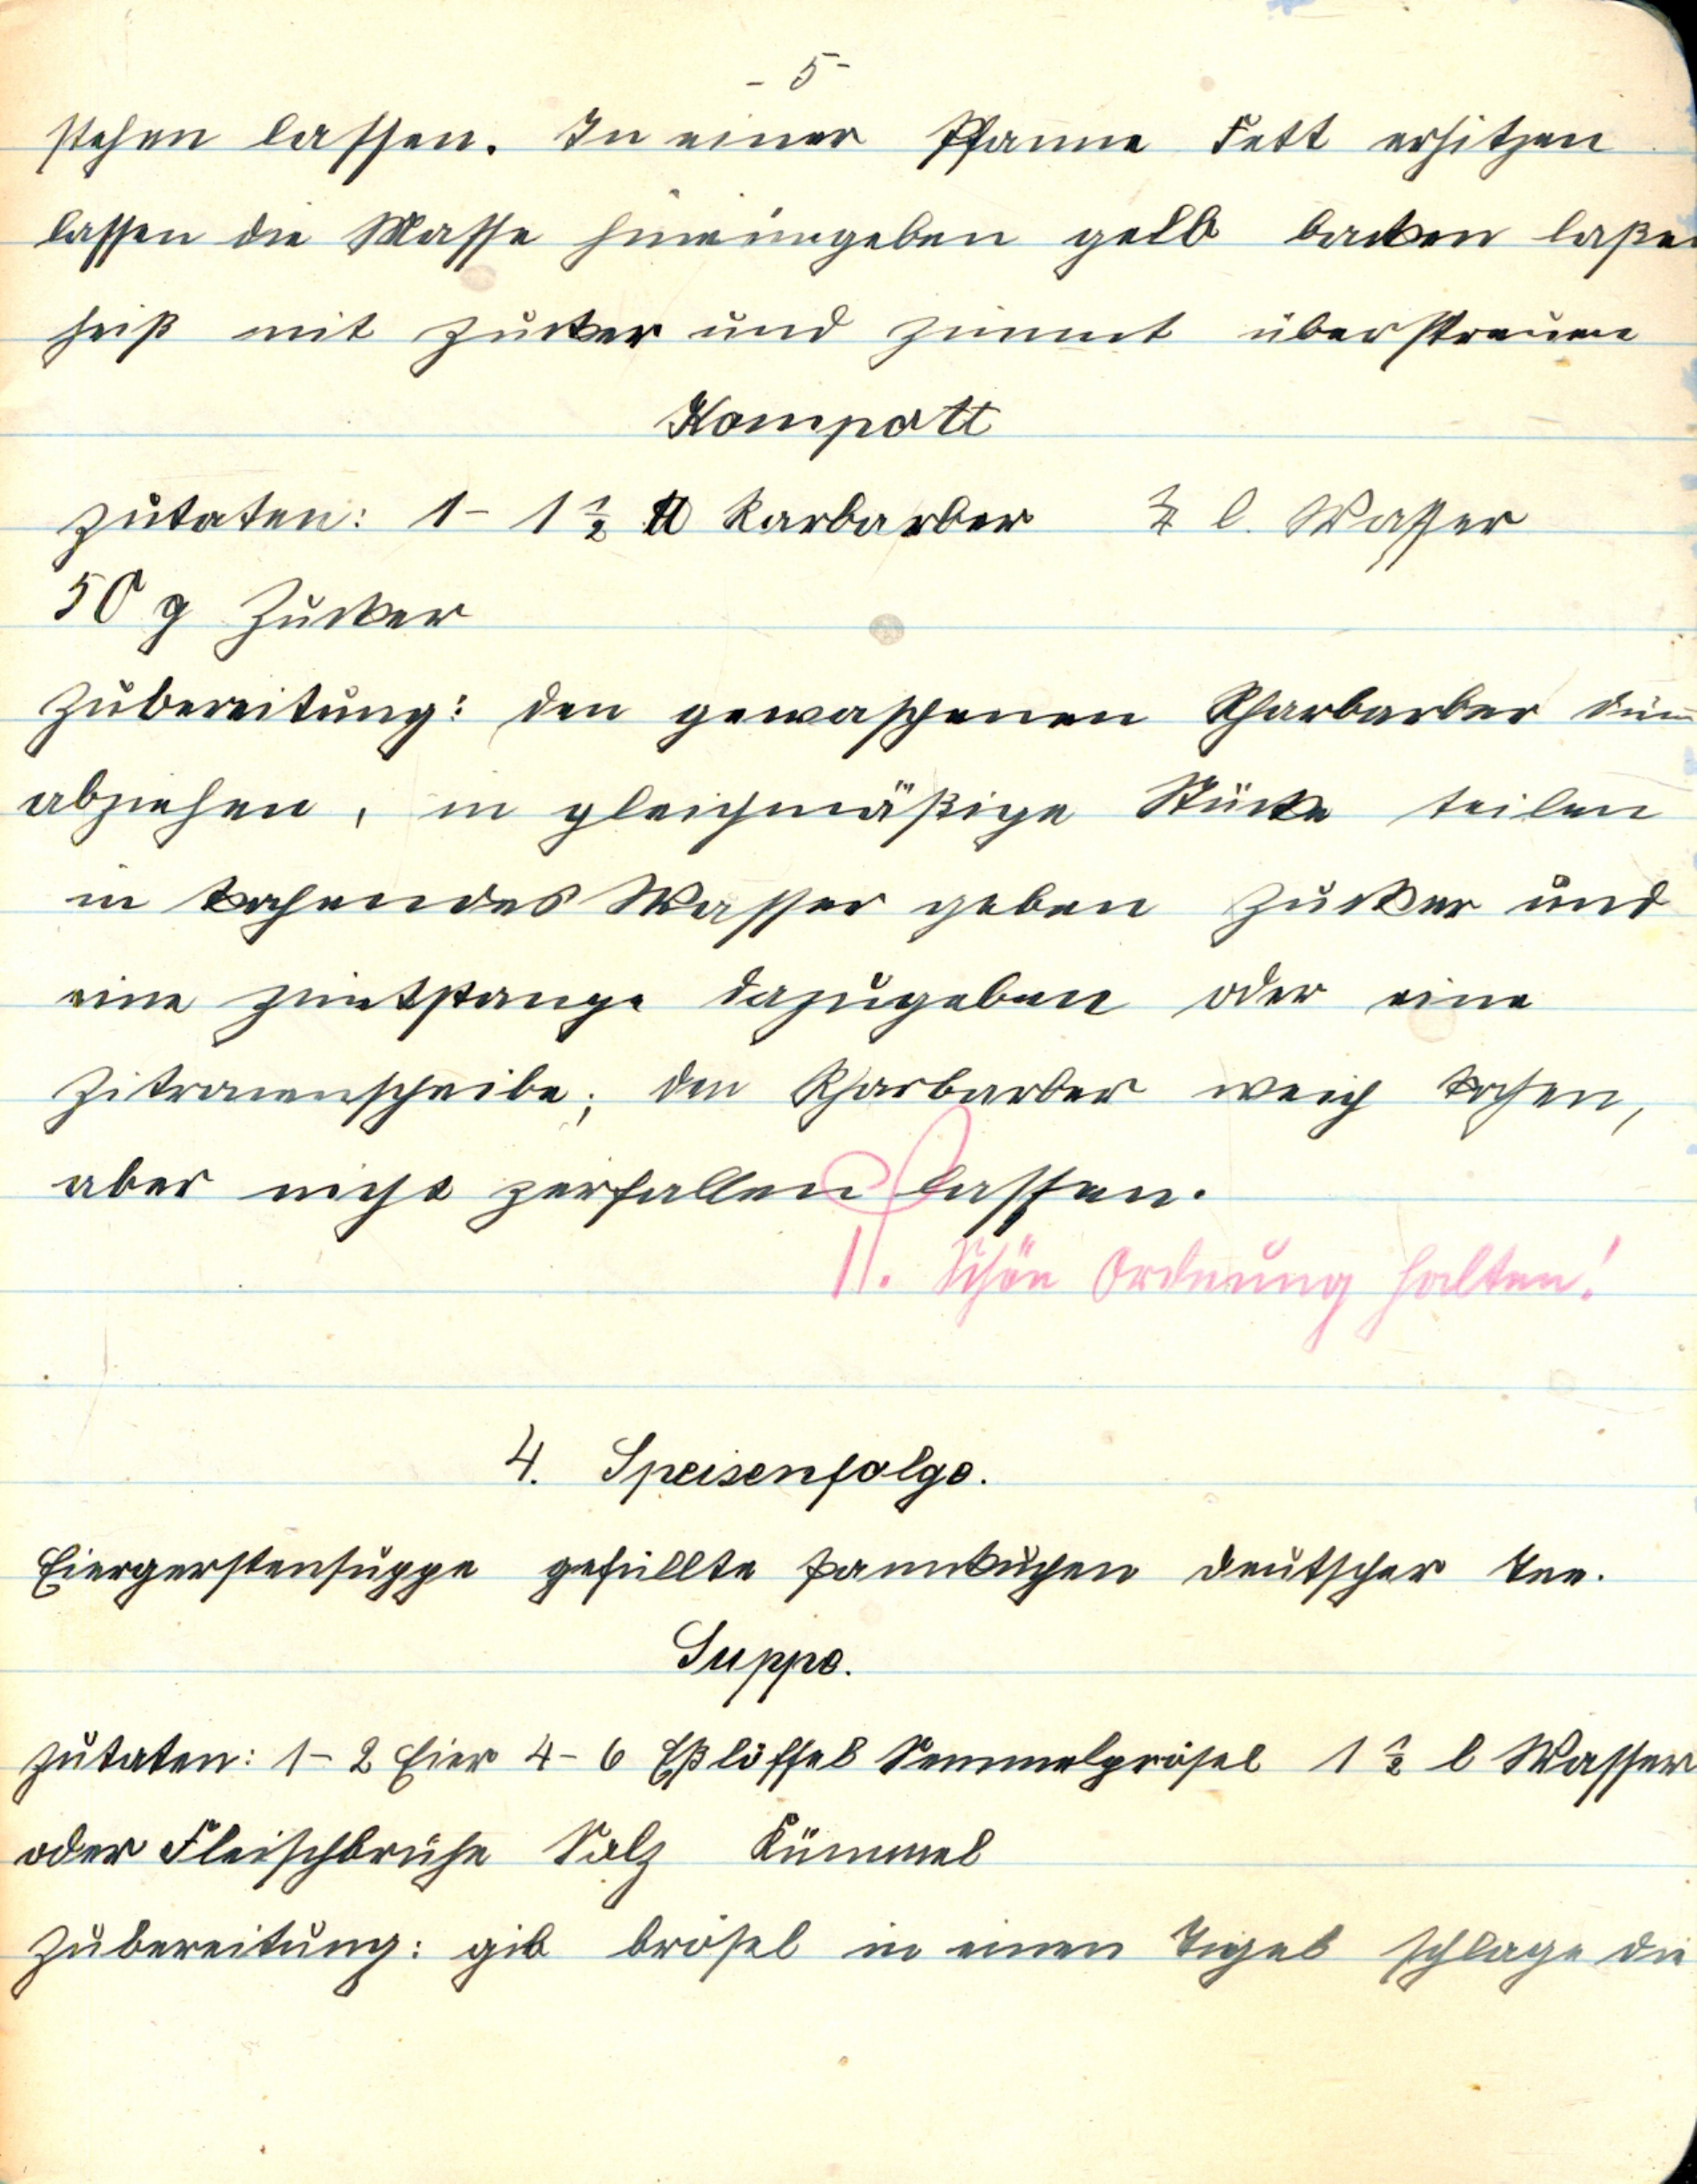 - 5 -
stehen lassen. In einer Pfanne Fett erhitzen
lassen die Masse hineingeben gelb backen laße
heiß mit Zucker und Zimmt überstreuen
Kompott
Zutaten: 1 - 1 ½ ℔ Rarbarber l. Wasser
50 g Zucker
Zubereitung: den gewaschenen Rharbarber dünn
abziehen, in gleichmäßige Stücke teilen
in kochendes Wasser geben Zucker und
eine Zimtstange dazugeben oder eine
Zitronenscheibe; den Rharbarber weich kochen,
aber nicht zerfallen lassen.
II. Schön Ordnung halten!
4. Speisenfolge.
Eiergerstensuppe gefüllte Pannkuchen deutscher Tee.
Suppe.
Zutaten: 1 - 2 Eier 4 - 6 Eßlöffel Semmelprösel 1 ½ l Wasser
oder Fleischbrühe Salz Kümmel
Zubereitung: gib brösel in einen Tigel schlage die